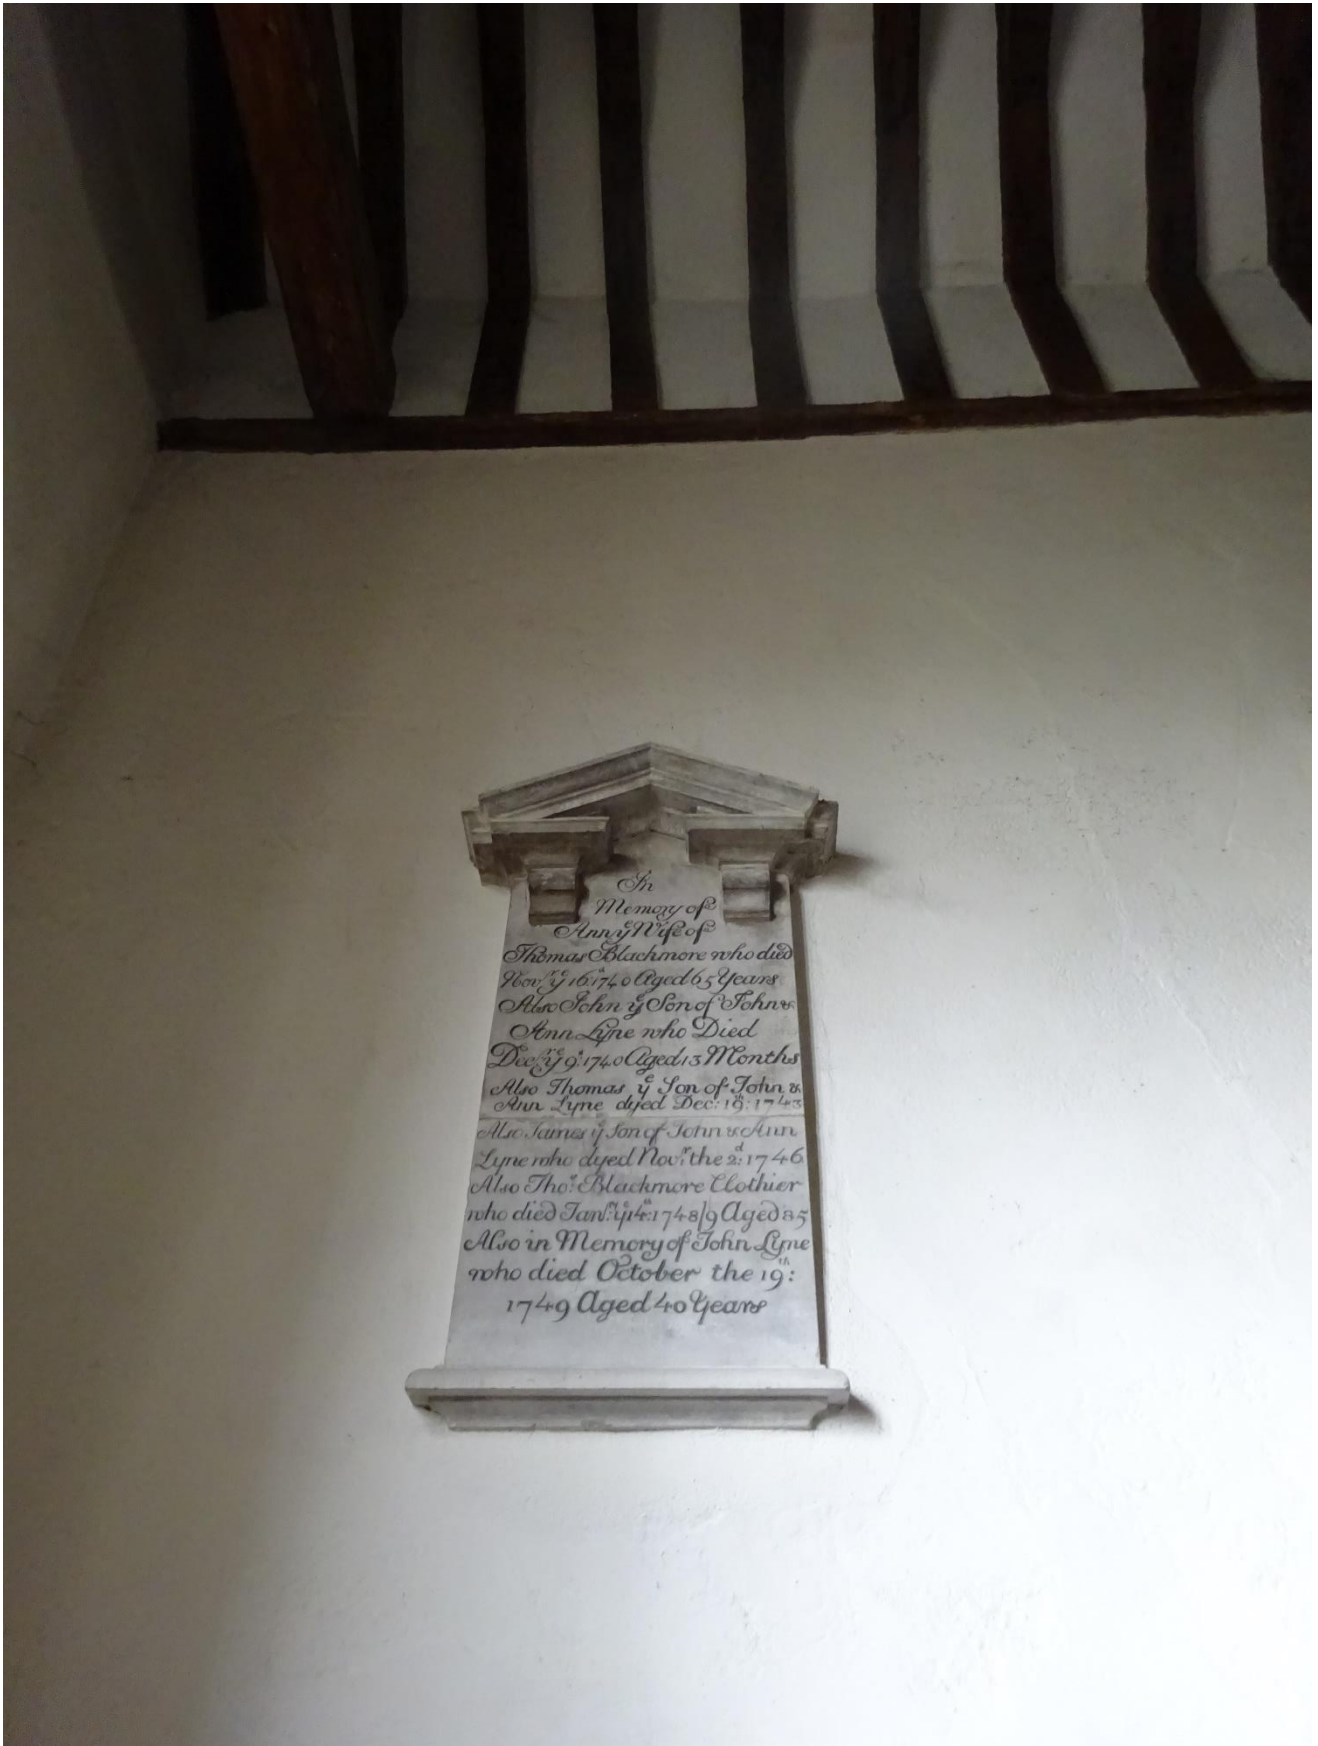 In
Memory of
Ann yᵉ Wife of
Thomas Blackmore who died
Novʳ yᵉ 16ᵗʰ: 1740 Aged 65 Years
Also John yᵉ Son of John &
Ann Lyne who Died
Decʳ yᵉ 9ᵗʰ: 1740 Aged 13 Months
Also Thomas yᵉ Son of John &
Ann Lyne dyed Dec: 19ᵗʰ: 1743
Also James yᵉ Son of John & Ann
Lyne who dyed Novʳ: the 2ᵈ: 1746
Also Thoˢ: Blackmore Clothier
who died Janʳʸ: yᵉ 14ᵗʰ: 1748/9 Aged 85
Also in Memory of John Lyne
who died October the 19ᵗʰ:
1749 Aged 40 Years